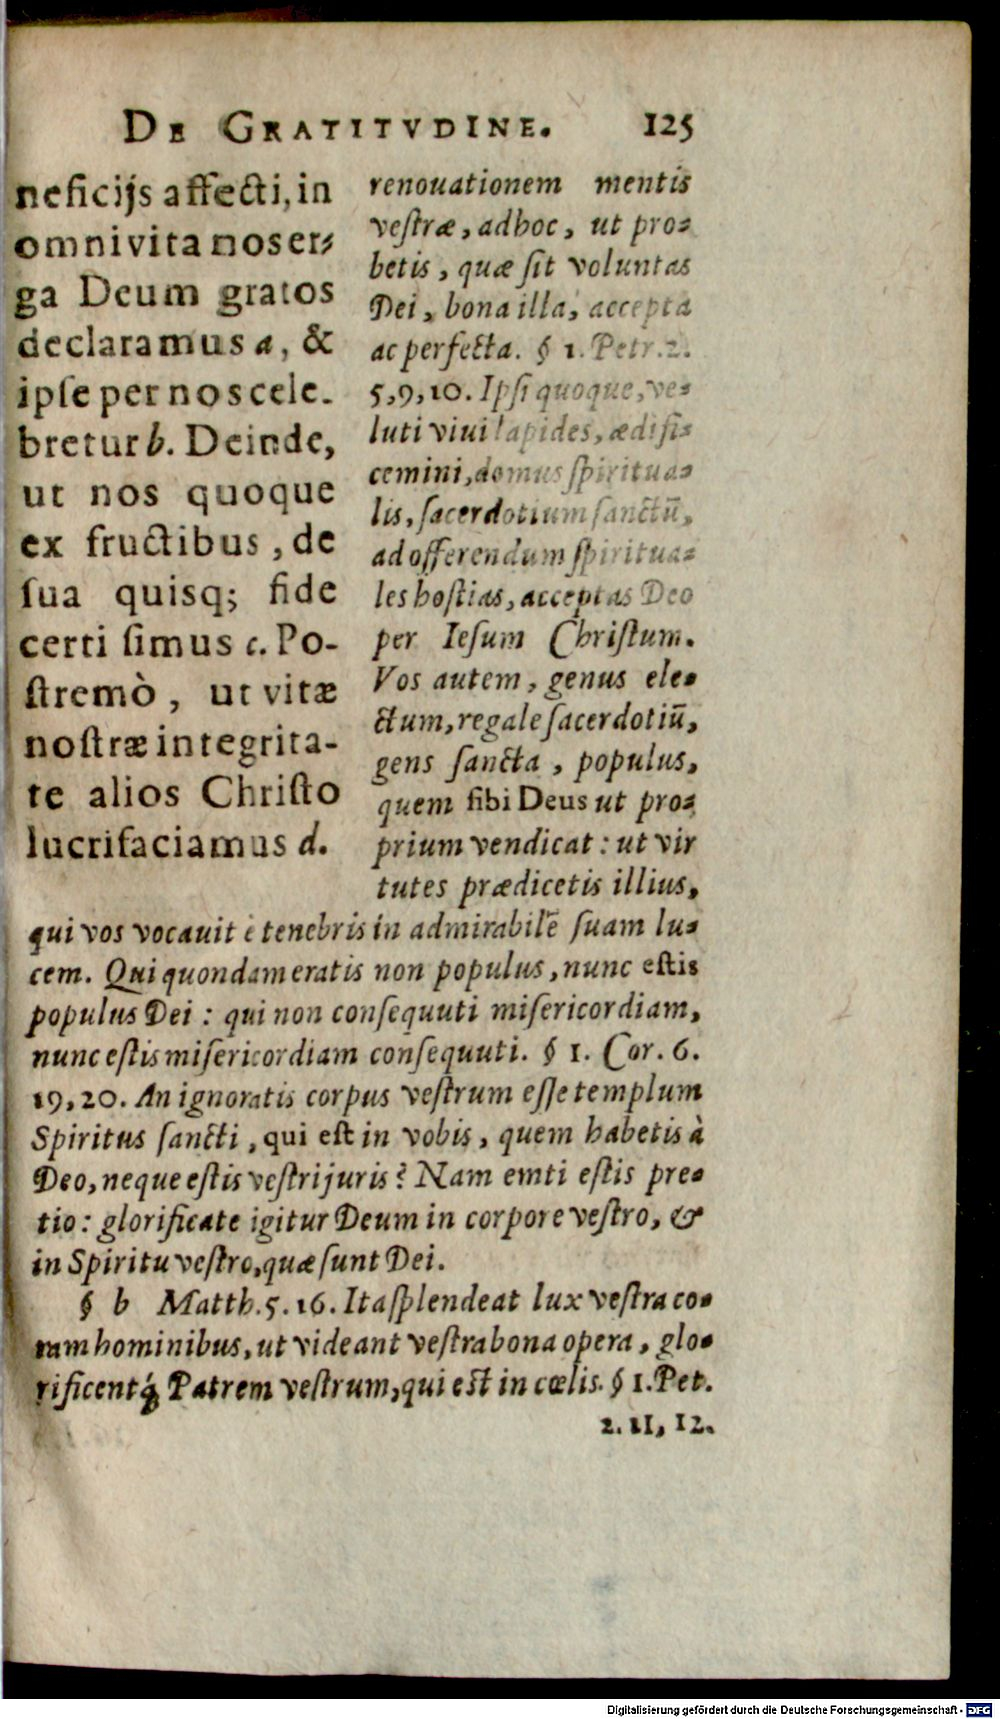 DE GRATITVDINE. 125
neficijs affecti, in
omni vita nos er-
ga Deum gratos
declaramus a, &
ipſe per nos cele-
bretur b. Deinde,
ut nos quoque
ex fructibus, de
ſua quisq; fide
certi ſimus c. Po-
ſtremò, ut vitæ
noſtræ integrita-
te alios Chriſto
lucrifaciamus d.
renouationem mentis
veſtræ, adhoc, ut pro-
betis, quæ ſit voluntas
Dei, bona illa, accepta
ac perfecta. § 1. Petr. 2.
5, 9, 10. Ipſi quoque, ve-
luti viui lapides, ædifi-
cemini, domus ſpiritua-
lis, ſacerdotium ſanctū,
ad offerendum ſpiritua-
les hoſtias, acceptas Deo
per Ieſum Chriſtum.
Vos autem, genus ele-
ctum, regale ſacerdotiū,
gens ſancta, populus,
quem ſibi Deus ut pro-
prium vendicat: ut vir
tutes prædicetis illius,
qui vos vocauit è tenebris in admirabilē ſuam lu-
cem. Qui quondam eratis non populus, nunc eſtis
populus Dei: qui non conſequuti miſericordiam,
nunc eſtis miſericordiam conſequuti. § 1. Cor. 6.
19, 20. An ignoratis corpus veſtrum eſſe templum
Spiritus ſancti, qui eſt in vobis, quem habetis à
Deo, neque eſtis veſtri juris? Nam emti eſtis pre-
tio: glorificate igitur Deum in corpore veſtro, &
in Spiritu veſtro, quæ ſunt Dei.
§ b Matth. 5. 16. Ita ſplendeat lux veſtra co-
ram hominibus, ut videant veſtra bona opera, glo-
rificentq́; Patrem veſtrum, qui eſt in cœlis. § 1. Pet.
2. 11, 12.
Digitalisierung gefördert durch die Deutsche Forschungsgemeinschaft - DFG